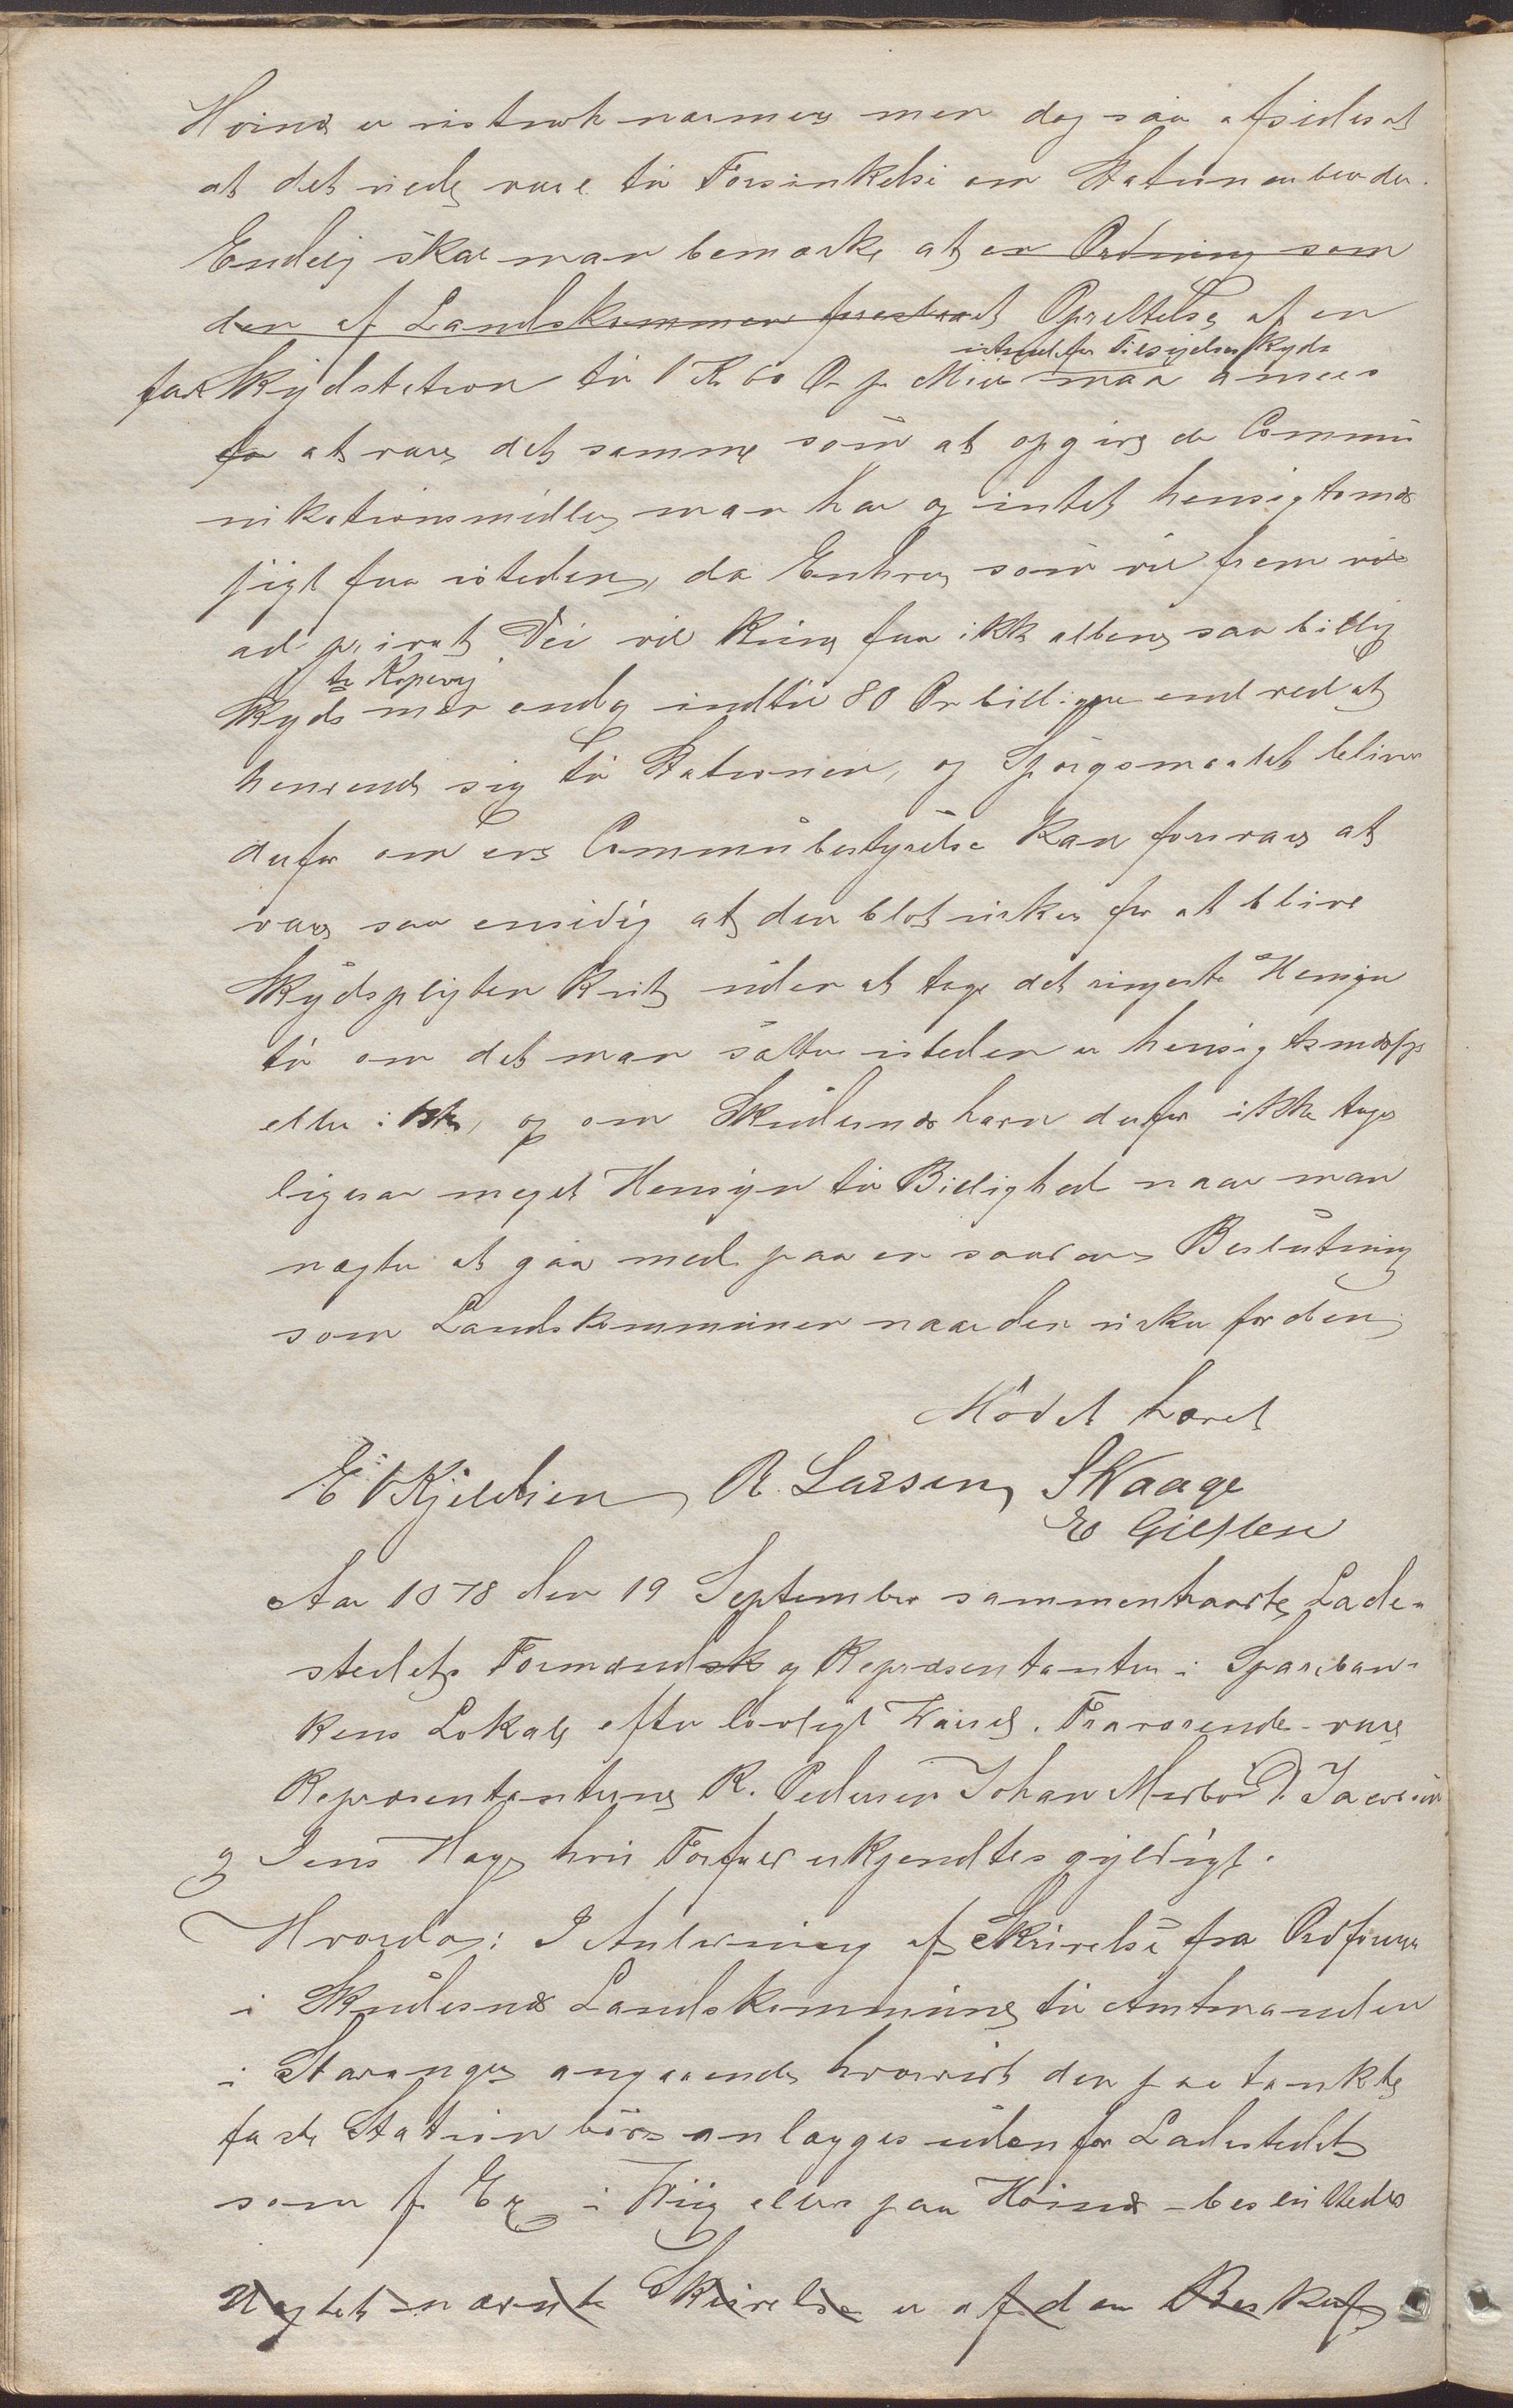 Høines er vistnok nærmere men dog saa afsides at
at det vilde være til Forsinkelse om Stationen blev der.
Endelig skal man bemærke at en Ordning som
den af Landskommunen foreslaaet Oprettelse af en
istedetfor Tilsigelses Skyds
fast Skydsstation til 1 Kr 60 Ør pr Miil maa ansees
for at være det samme som at opgive de Commu
nikationsmidler man har og intet hensigtsmæs
sigt faa isteden, da Enhver som vil frem ved
ad privat Vei vil kunne faa ikke alene saa billig
til Kopervig
Skyds men endog indtil 80 Ør billigere end ved at
henvende sig til Stationen, og Spørgsmaalet bliver
derfor om en Communebestyrelse kan forsvare at
være saa ensidig at den blot virker for at blive
Skydspligten kvit uden at tage det ringeste Hensyn
til om det man sætter isteden er hensigtsmæssigt
eller ikke, og om Skudesneshavn derfor ikke tager
ligesaa meget Hensyn til Billighed naar man
nægter at gaa med paa en saadan Beslutning
som Landskommunen naar den virker for den
Mødet hævet
E V Kjeldsen R. Larsen S Waage
E Gielsten
Aar 1878 den 19 September sammentraadte Lade-
stedets Formændsk og Repræsentanter i Spareban-
kens Lokale efter lovligt Varsel. Fraværende vare
Repræsentanterne R. Pedersen Johan D. Jacobsen
og Jens Hage hvis Forfald erkjendtes gyldigt.
Hvorda: I Anledning af Skrivelse fra Ordføreren
i Skudesnes Landskommune til Amtmanden
i Stavanger angaaende hvorvidt den paatænkte
faste Station bør anlægges udenfor Ladestedet
som f. Ex i Viig eller paa Høines - besluttedes
Uagtet nævnte Skrivelse er af den Beskaf